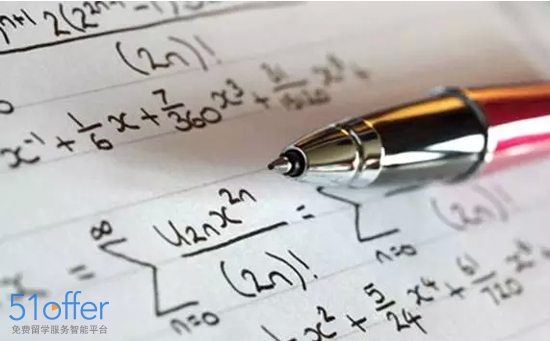 n+1 2(2²ⁿ⁻¹
(2n)!
x⁻¹ + 1/6 x + 7/360 x³ +
= ∞ Σ n=0 U₂ₙx²ⁿ/(2n)! = Σ n=0 (2n)!
x² + 5/24 x⁴ + 61/720 x⁶
51offer
免费留学服务智能平台